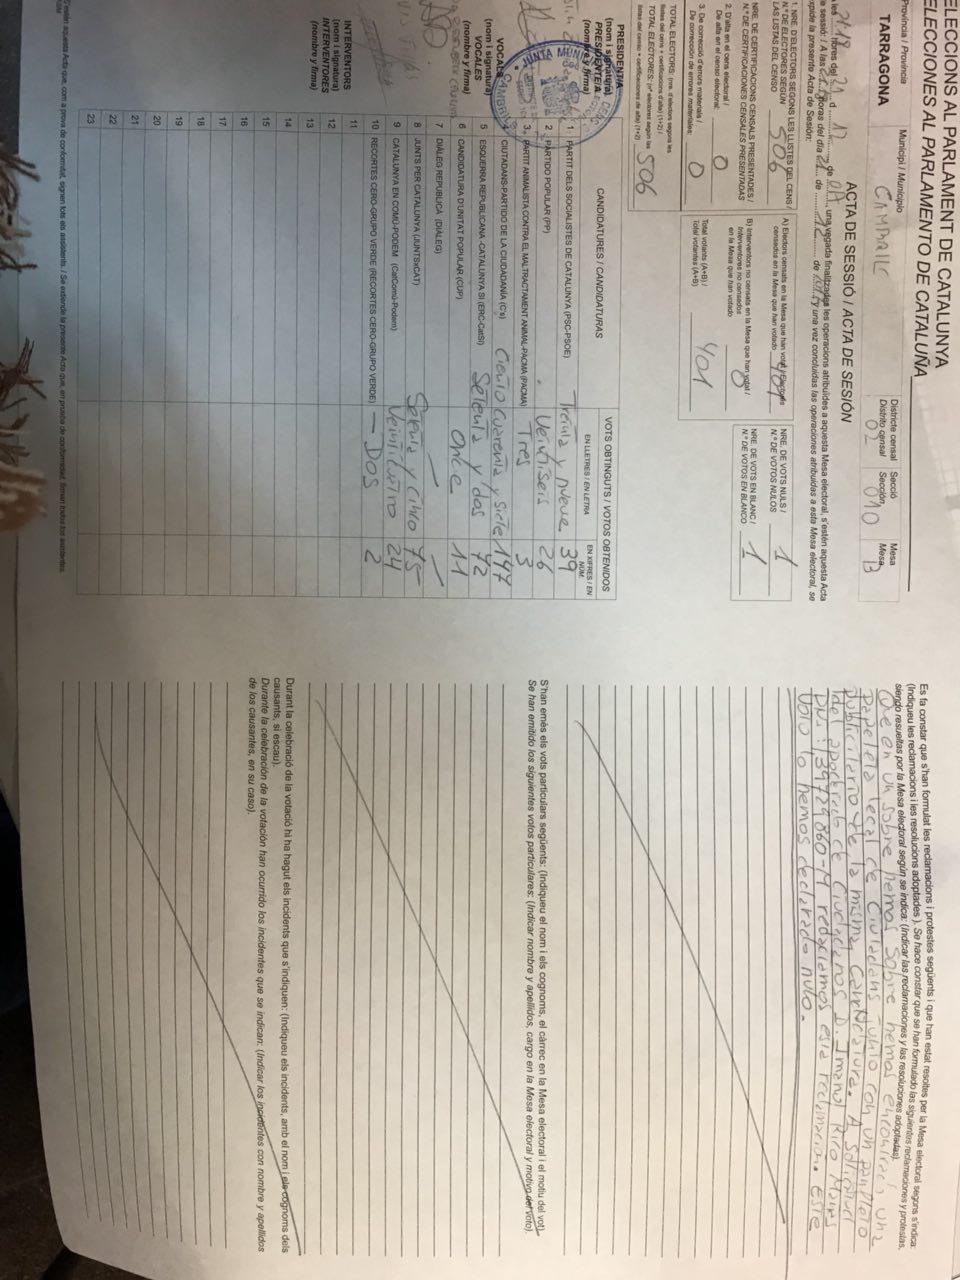 ELECCIONS AL PARLAMENT DE CATALUNYA
ELECCIONES AL PARLAMENTO DE CATALUÑA
Província / Provincia
TARRAGONA
Municipi / Municipio
CAMBRILS
Districte censal
Distrito censal
02
Secció
Sección
010
Mesa
Mesa
B
ACTA DE SESSIÓ / ACTA DE SESIÓN
una vegada finalitzades les operacions atribuïdes a aquesta Mesa electoral, s'estén aquesta Acta
y una vez concluidas las operaciones atribuidas a esta Mesa electoral, se
expide la presente Acta de Sesión:
1. NRE. D'ELECTORS SEGONS LES LLISTES DEL CENS /
N.º DE ELECTORES SEGÚN
LAS LISTAS DEL CENSO
506
NRE. DE CERTIFICACIONS CENSALS PRESENTADES /
N.º DE CERTIFICACIONES CENSALES PRESENTADAS
2. D'alta en el cens electoral /
De alta en el censo electoral:
0
3. De correcció d'errors materials /
De corrección de errores materiales:
0
TOTAL ELECTORS: (nre. d'electors segons les
llistes del cens + certificacions d'alta) (1+2) /
TOTAL ELECTORES: (nº electores según las
listas del censo + certificaciones de alta) (1+2)
506
A) Electors censats en la Mesa que han votat / Electores
censados en la Mesa que han votado
401
B) Interventors no censats en la Mesa que han votat /
Interventores no censados
en la Mesa que han votado
0
Total votants (A+B) /
Total votantes (A+B)
401
NRE. DE VOTS NULS /
N.º DE VOTOS NULOS
1
NRE. DE VOTS EN BLANC /
N.º DE VOTOS EN BLANCO
1
CANDIDATURES / CANDIDATURAS
VOTS OBTINGUTS / VOTOS OBTENIDOS
EN LLETRES / EN LETRA
EN XIFRES / EN NÚM.
1 PARTIT DELS SOCIALISTES DE CATALUNYA (PSC-PSOE) Treinta y nueve 39
2 PARTIDO POPULAR (PP) Veintiseis 26
3 PARTIT ANIMALISTA CONTRA EL MALTRACTAMENT ANIMAL-PACMA (PACMA) Tres 3
4 CIUTADANS-PARTIDO DE LA CIUDADANÍA (C's) Ciento Cuarenta y siete 147
5 ESQUERRA REPUBLICANA -CATALUNYA SÍ (ERC-CatSí) Setenta y dos 72
6 CANDIDATURA D'UNITAT POPULAR (CUP) Once 11
7 DIÀLEG REPUBLICÀ (DIÀLEG) — —
8 JUNTS PER CATALUNYA (JUNTSxCAT) Setenta y cinco 75
9 CATALUNYA EN COMÚ-PODEM (CatComú-Podem) Veinticuatro 24
10 RECORTES CERO-GRUPO VERDE (RECORTES CERO-GRUPO VERDE) — Dos 2
11
12
13
14
15
16
17
18
19
20
21
22
23
PRESIDENT/A
(nom i signatura)
PRESIDENTE/A
(nombre y firma)
JUNTA
VOCALS
(nom i signatura)
VOCALES
(nombre y firma)
INTERVENTORS
(nom i signatura)
INTERVENTORES
(nombre y firma)
S'estén aquesta Acta que, com a prova de conformitat, signen tots els assistents. / Se extiende la presente Acta que, en prueba de conformidad, firman todos los asistentes.
Es fa constar que s'han formulat les reclamacions i protestes següents i que han estat resoltes per la Mesa electoral segons s'indica:
(Indiqueu les reclamacions i les resolucions adoptades ). Se hace constar que se han formulado las siguientes reclamaciones y protestas,
siendo resueltas por la Mesa electoral según se indica: (Indicar las reclamaciones y las resoluciones adoptadas).
Que en un sobre hemos sobre hemos encontrado una
papeleta legal de Ciutadans junto con un panfleto
publicitario de la misma candidatura. A solicitud
del apoderado de Ciudadanos D. Imanol Rico
redactamos esta reclamacion. Este
voto lo hemos declarado nulo.
S'han emès els vots particulars següents: (Indiqueu el nom i els cognoms, el càrrec en la Mesa electoral i el motiu del vot).
Se han emitido los siguientes votos particulares: (Indicar nombre y apellidos, cargo en la Mesa electoral y motivo del voto).
Durant la celebració de la votació hi ha hagut els incidents que s'indiquen: (Indiqueu els incidents, amb el nom i els cognoms dels
causants, si escau).
Durante la celebración de la votación han ocurrido los incidentes que se indican: (Indicar los incidentes con nombre y apellidos
de los causantes, en su caso).